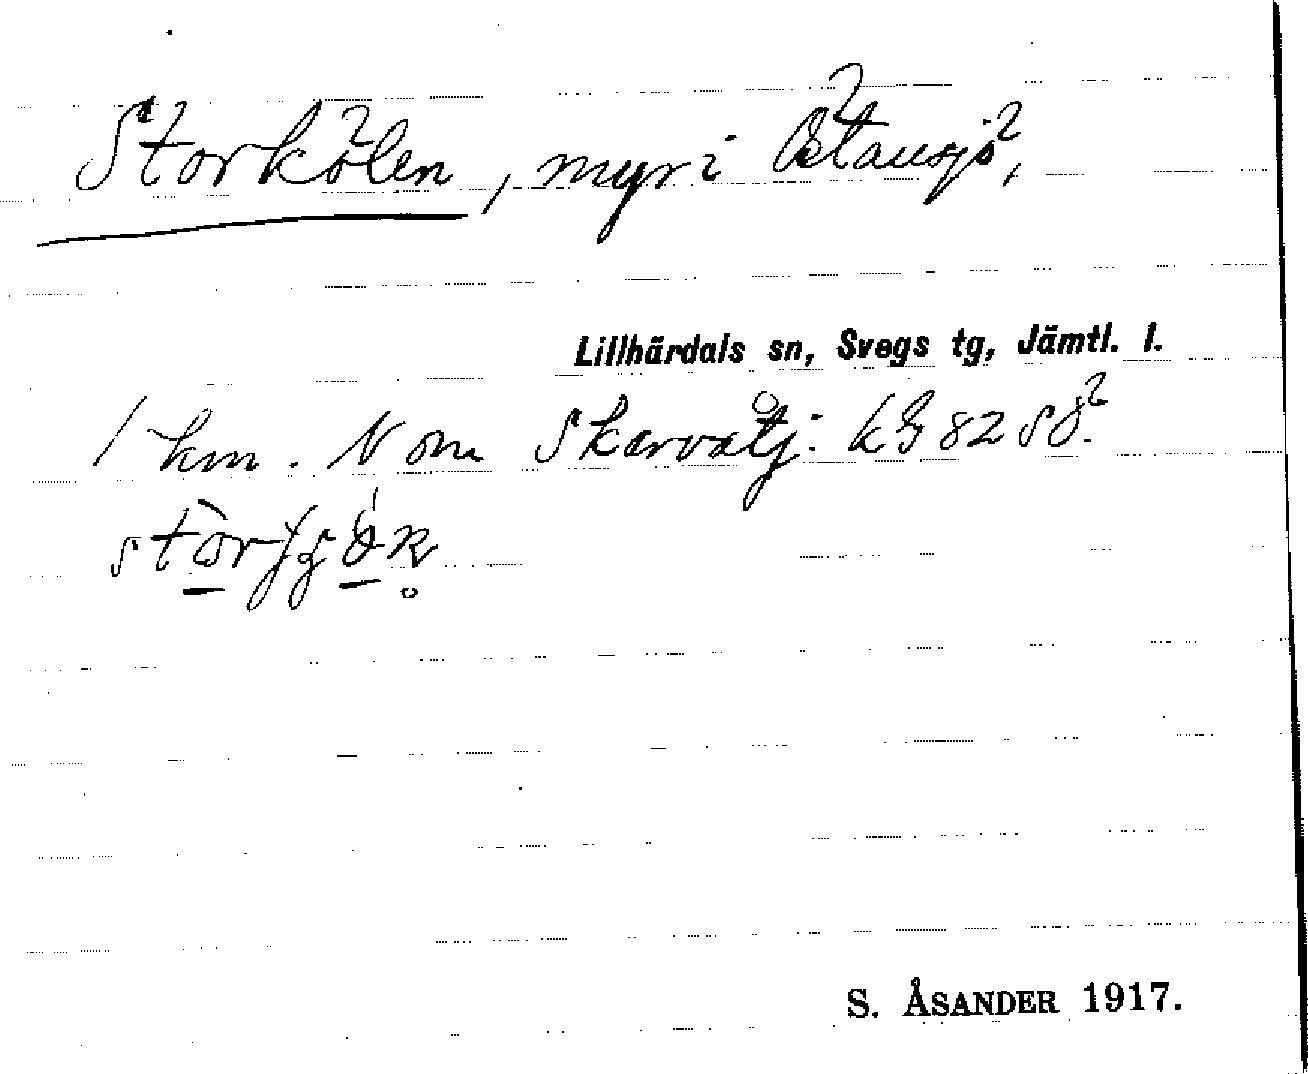 Storkölen, myr i Östansjö,
Lillhärdals sn, Svegs tg, Jämtl. l.
1 km. N om Skarvåtj: kG 82 SÖ.
S. ÅSANDER 1917.